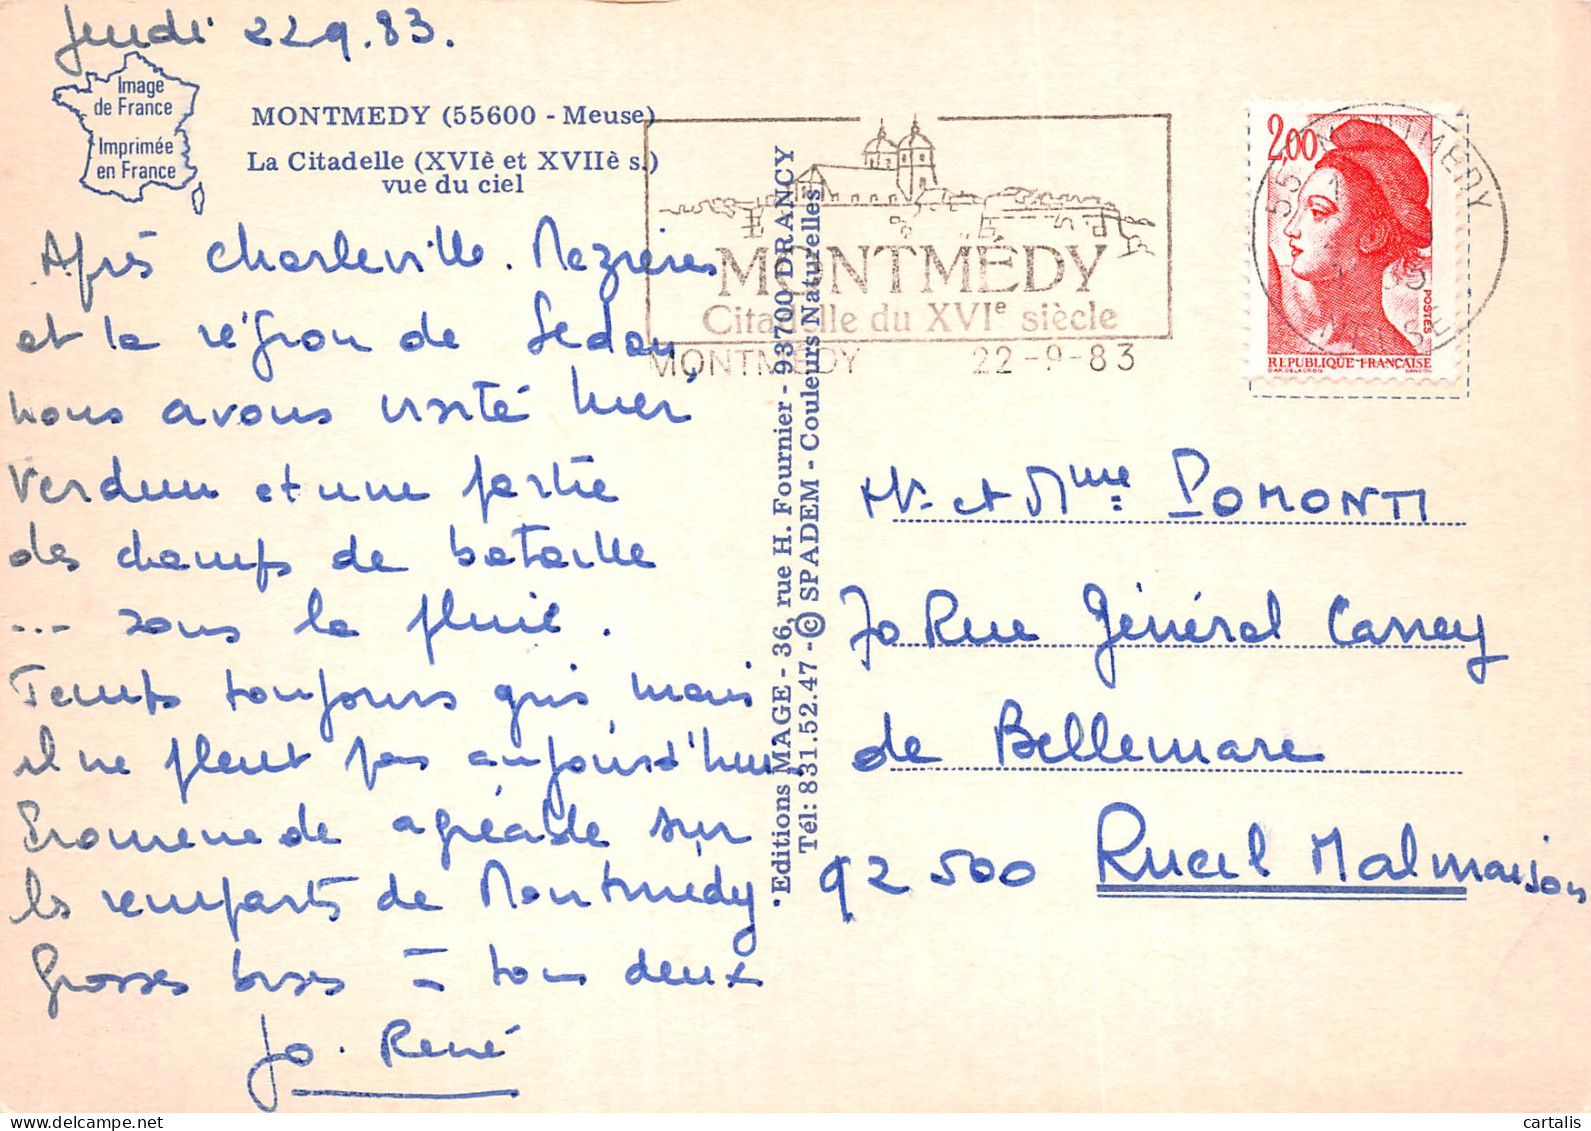 Jeudi 22.9.83.
Image
de France
Imprimée
en France
MONTMEDY (55600 - Meuse)
La Citadelle (XVIè et XVIIè s.)
vue du ciel
Après Charleville. Mezières
et la région de Sedan,
nous avons visité hier
Verdun et une partie
des champs de bataille
... sous la pluie.
Temps toujours gris, mais
il ne pleut pas aujourd'hui.
Promenade agréable sur
les remparts de Montmédy.
Grosses bises à tous deux
Jo. René
Editions MAGE - 36, rue H. Fournier - 93700 DRANCY
Tél: 831.52.47 - © SPADEM - Couleurs Naturelles
MONTMÉDY
Citadelle du XVIe siècle
MONTMEDY 22-9-83
2,00
POSTES
REPUBLIQUE FRANÇAISE
55 MONTMEDY
MEUSE
Mr et Mme POMONTI
70 Rue Général Carrey
de Bellemare
92 500 Rueil Malmaison
cartalis
www.delcampe.net